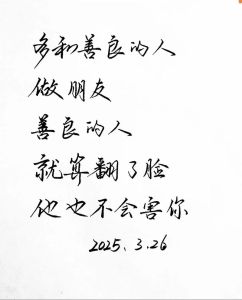 多和善良的人
做朋友
善良的人
就算翻了脸
他也不会害你
2025.3.26